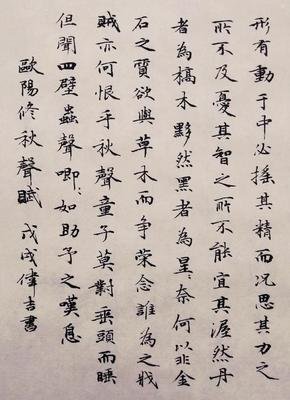 形有動于中必搖其精而況思其力之
所不及憂其智之所不能宜其渥然丹
者為槁木黟然黑者為星〻奈何以非金
石之質欲與草木而争荣念誰為之戕
賊亦何恨乎秋聲童子莫對垂頭而睡
但聞四壁蟲聲唧〻如助予之嘆息
歐陽修秋聲賦 戊戌偉吉書